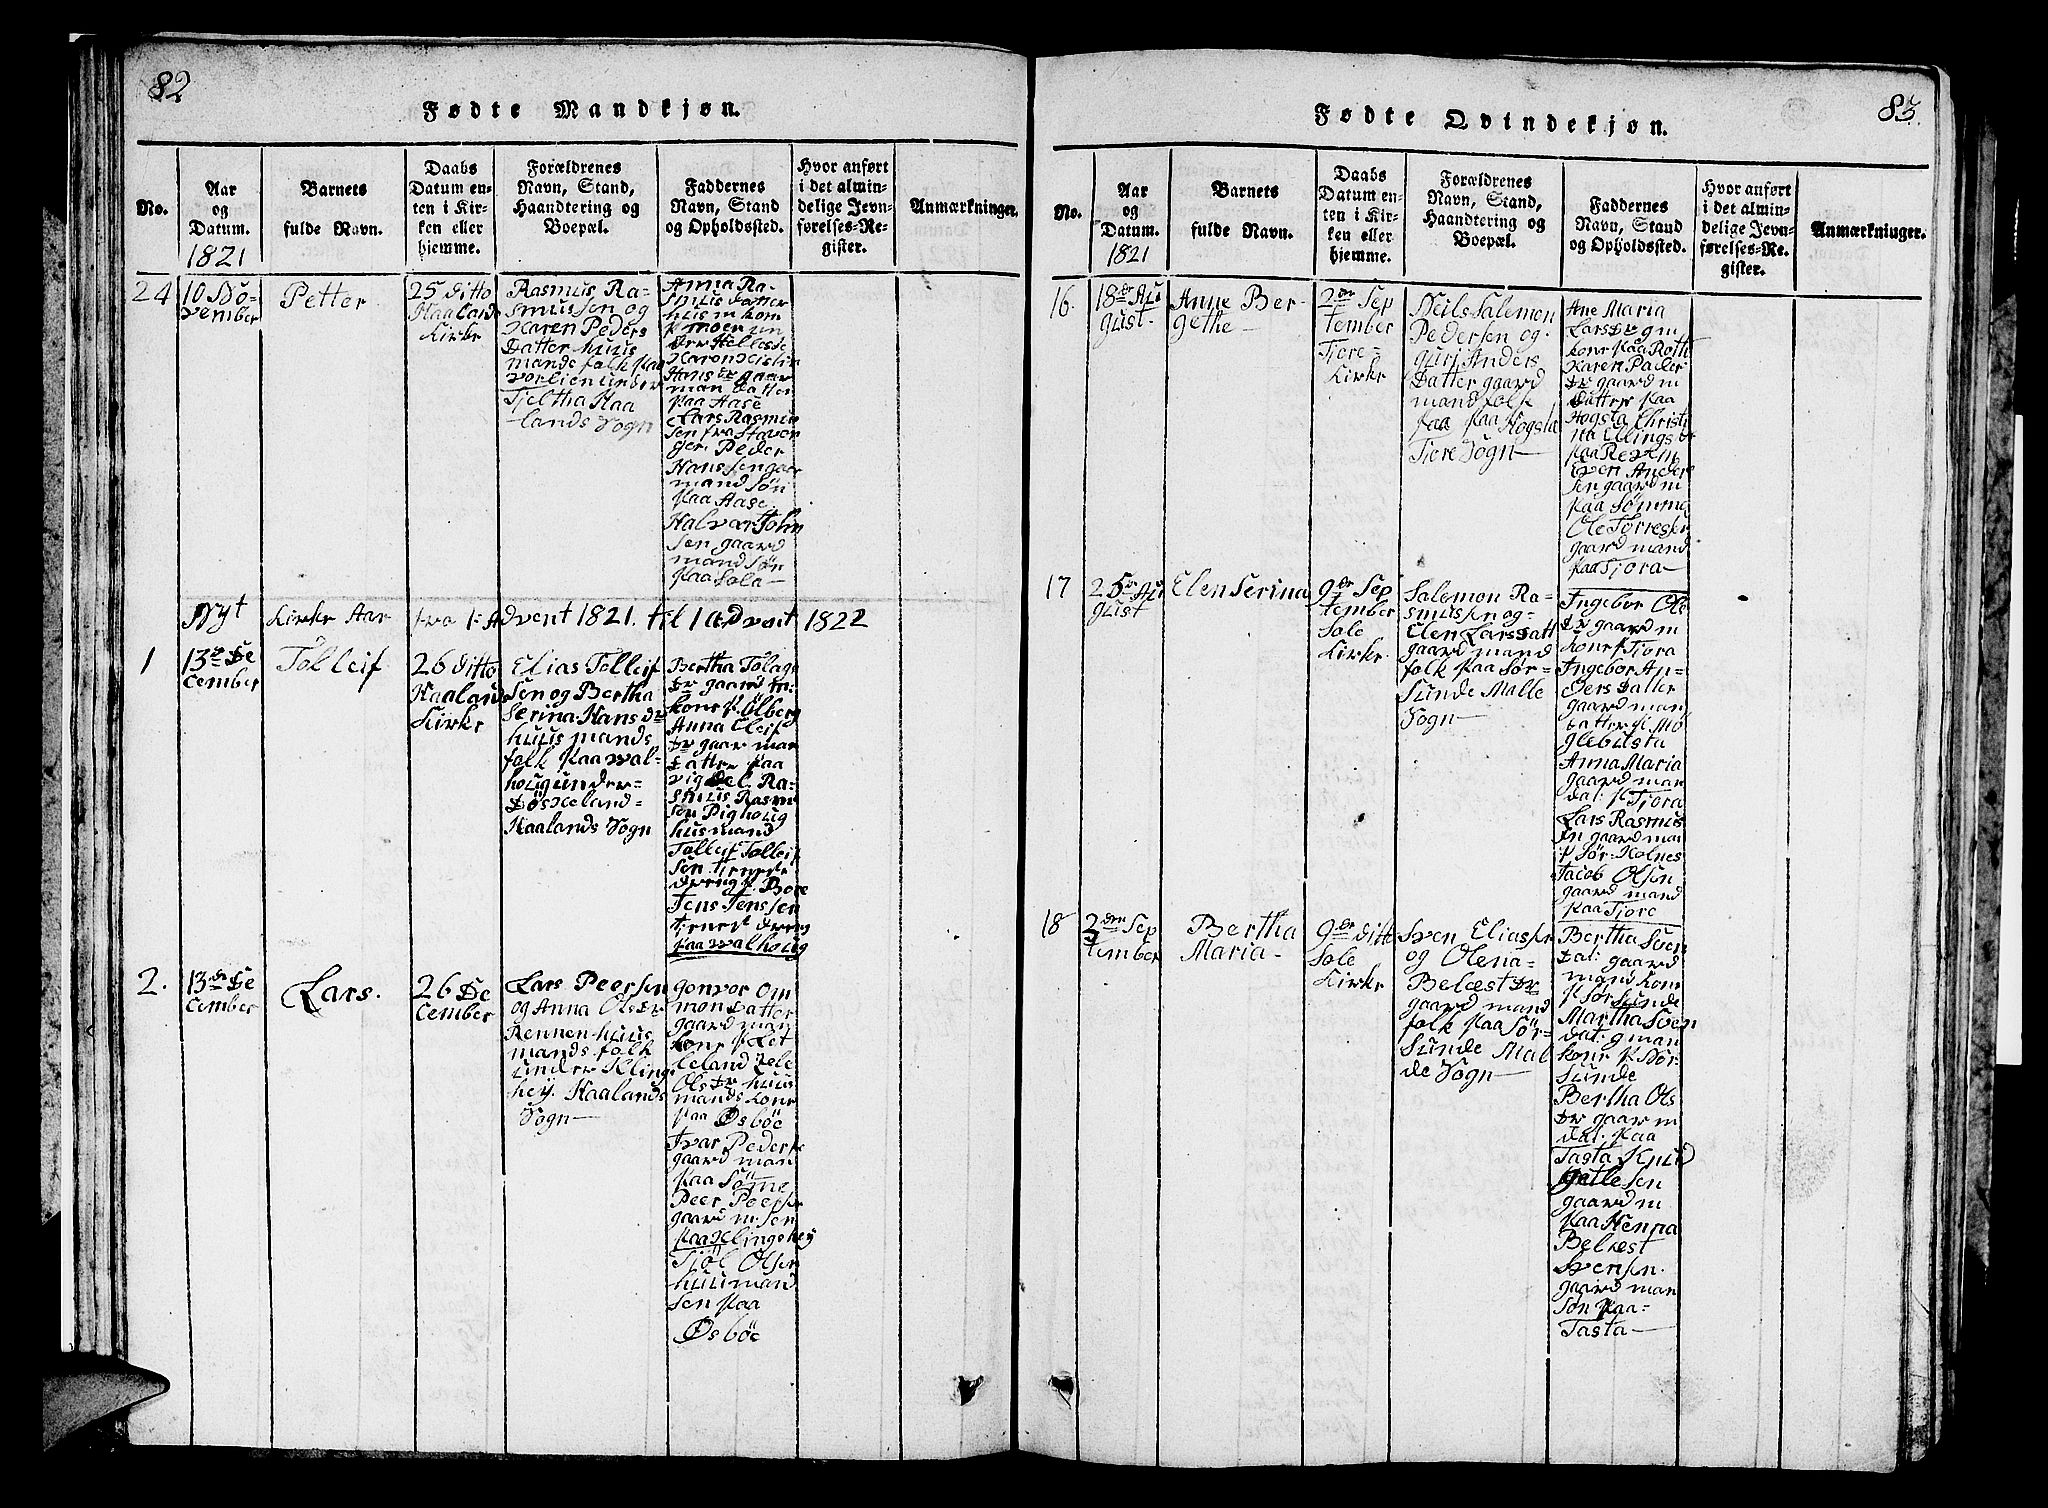 82
Fødte Mandkjøn.
No.
Aar
og
Datum.
1821
Barnets
fulde Navn.
Daabs
Datum en-
ten i Kir-
ken eller
hjemme.
Forældrenes
Navn, Stand,
Haandtering og
Boepæl.
Faddernes
Navn, Stand
og Opholdssted.
Hvor anført
i det almin-
delige Jevn-
førelses-Re-
gister.
Anmærkninger.
24
10 No-
vember
Petter
25 ditto
Haalands
Kirke
Rasmus Ra-
smussen og
Karen Peders
Datter huus
mands folk paa
under
Tjeltha Haa
lands Sogn
Anna Ra-
smus datter
Hans Dr gaar
man datter
paa Aase
Lars Rasmu
sen fra Stavan
ger Peder
Hanssen gaar
mand søn
paa Aase
Halvar John
sen gaard
mand søn
paa Sola
Nyt Kirke Aar fra 1 Advent 1821. til 1 advent 1822
1
13de De
cember
Tolleif
26 ditto
Haaland
Kirke
Elias Tolleif
sen og Bertha
Serina Hans dr
huus mands
folk paa wal-
houg under-
Døskeland-
Haalands Sogn
Bertha
Dr gaard m
kone p Ølberg
Anna Eleif
Dr gaar man
Datter paa
vigdel Ra-
smus Rasm
son Pighoug
husmand
Tolleif Tolleif
sen tjeneste
dreng p. Bore
Jens Jenssen
tjenest dreng
paa walhoug
2.
13de De
cember
Lars.
26 De
cember
Lars Peersen
og Anna Ols Dr
Rennen huus
mands folk
under Kling
hey. Haalands
Sogn
gonvor Om
mon Datter
gaard man
kone p Let
leland
Ols Dr huus
mands kone
paa Øsbøe
Ivar Peders
gaard man
paa Sømme
Peer Peerse
gaard m. sen
paa Klingshey
Tjøl Olsen
huusmand
sen paa
Øsbøe
83.
Fødte Qvindekjøn.
No.
Aar
og
Datum.
1821
Barnets
fulde Navn.
Daabs
Datum en-
ten i Kir-
ken eller
hjemme.
Forældrenes
Navn, Stand,
Haandtering og
Boepæl.
Faddernes
Navn, Stand
og Opholdssted.
Hvor anført
i det almin-
delige Jevn-
førelses-Re-
gister.
Anmærkninger.
16.
18de Au
gust.
Anne Ber-
gethe
2den Sep
tember
Tjore-
Kirke
Neils Salemon
Pedersen og
guri Anders
Datter gaard
mand folk
paa Hogsta
Tjore Sogn
Ane Maria
Lars Dr g m
kone paa Roth
Karen Peder
Dr gaard m
Datter paa
Hogsta Christi
na Ellings Dr
paa
Sven Ander
sen gaard m
paa Sømme
Ole Torresen
gaard mand
paa Tjora
17
25de Au
gust
Elen Serina
9de Sep
tember
Sole
Kirke
Salemon Ra-
smusen og
Elen Lars Datt
gaard mand
folk paa Sør-
Sunde Malle
Sogn
Ingebor Ole
Dr gaard m
kone p Tjora
Ingebor An-
ders Datter
gaard man
datter p Mø
glebusta
Anna Maria
gaard man
dat: p Tjora
Lars Rasmus
sen gaard man
p Sør Kolnes
Jacob Olsen
gaard mand
paa Tjore
18
3den Sep
tember
Bertha
Maria
9de ditto
Sole
Kirke
Sven Eliasen
og Olena
Belæst Dr
gaard mand
folk paa Sør-
Sunde Mal
de Sogn
Bertha Sven
Dat: gaard
mand kone
p Sør sunde
Martha Sven
dat: g man
kone p Nør-
sunde
Bertha Ols
Dr gaar m
dat: paa
Tasta Knud
gaard m
paa
Belæst
Svensen.
gaard man
søn paa
Tasta